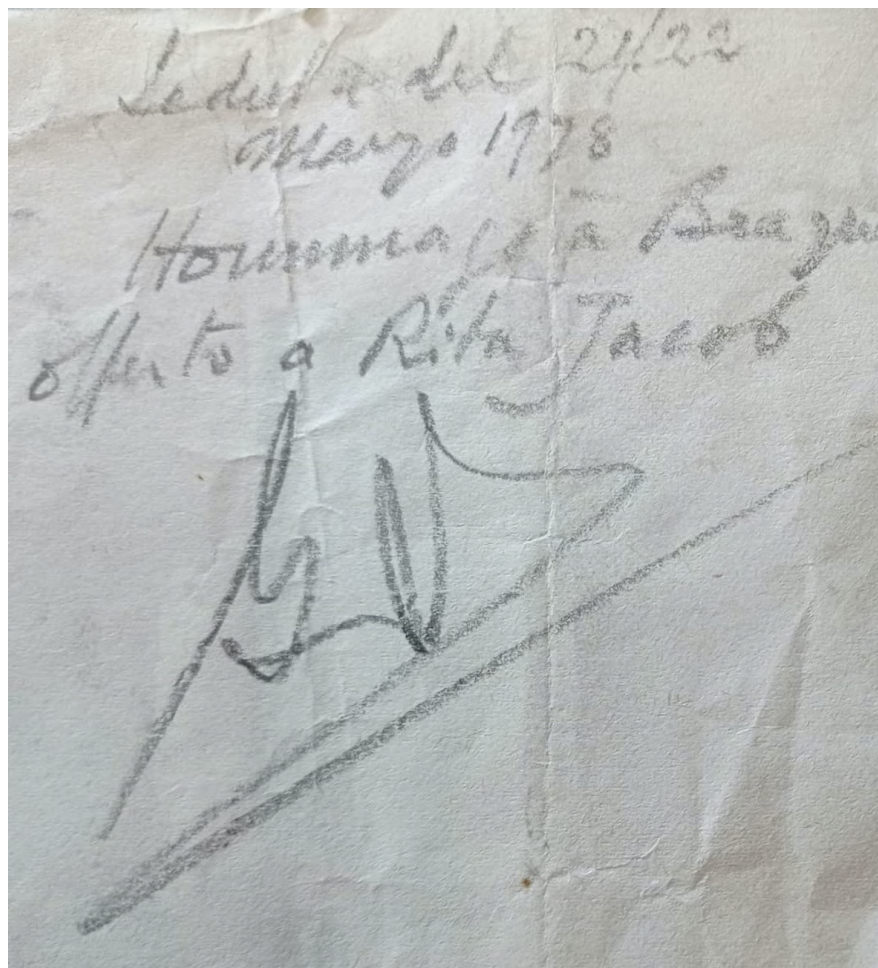 Seduta del 21/22
Marzo 1978
Hommage à
offerto a Rita Jacob